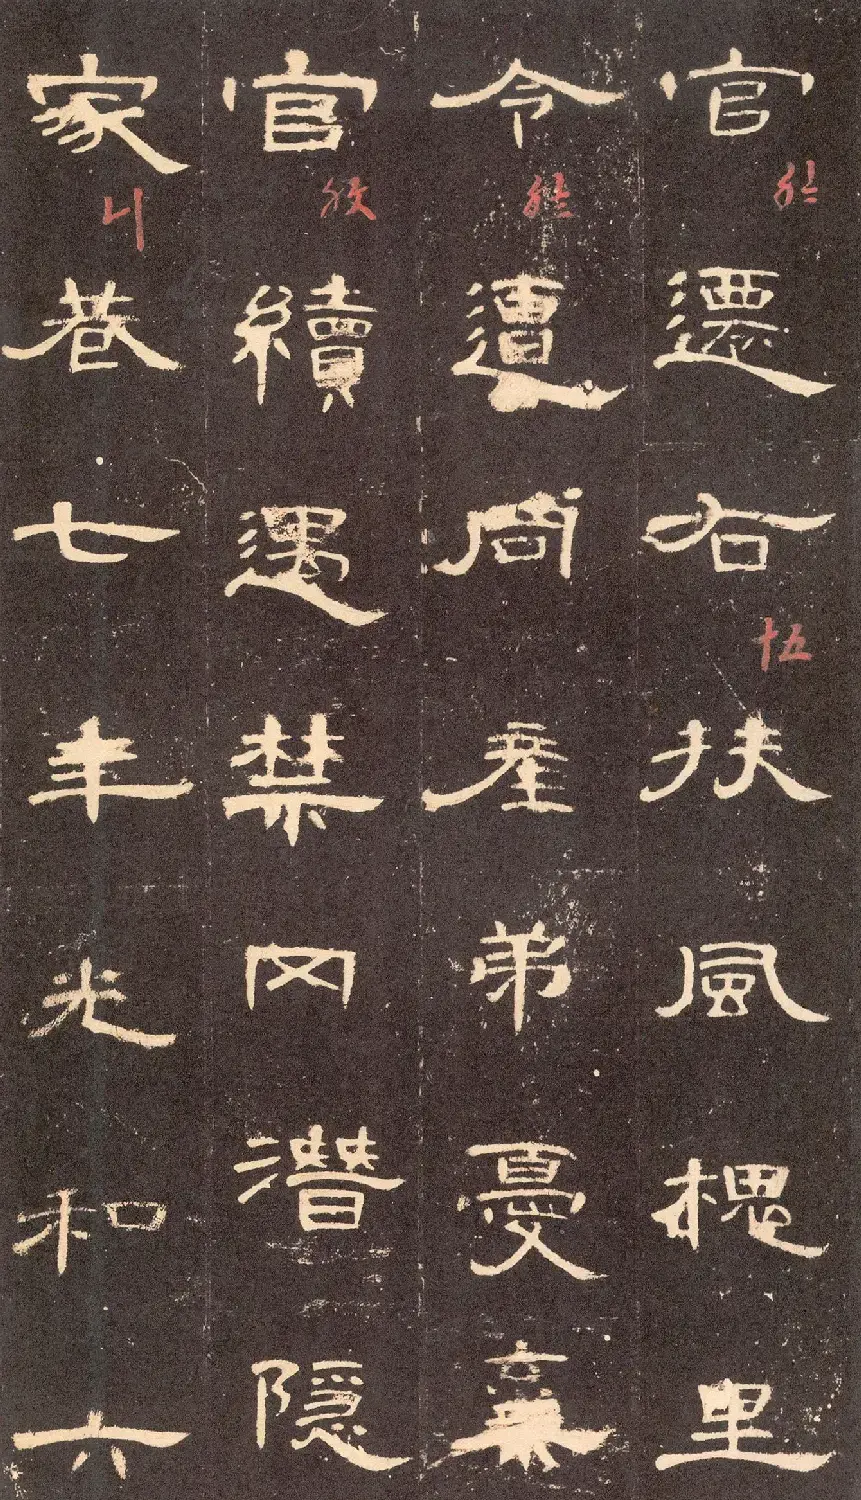 官遷右扶風槐里
令遭同產弟憂棄
官續遇禁网潛隱
家巷七年光和六
十五